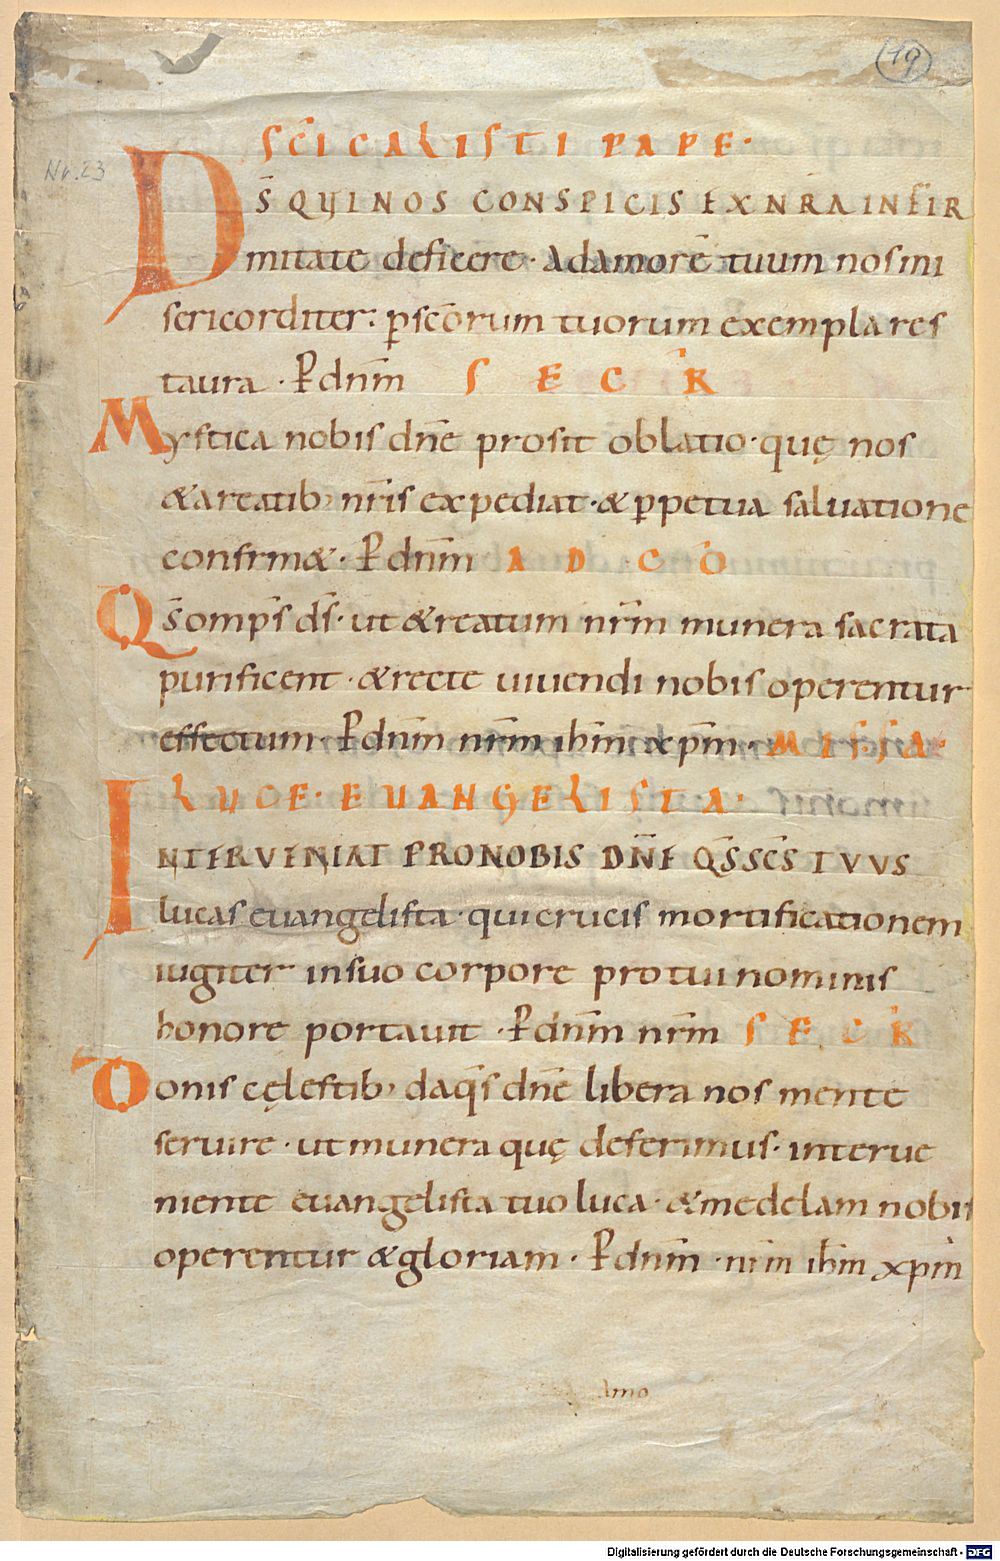 19
Nr. 23
SC̄I CALISTI PAPE·
DS̄ QUI NOS CONSPICIS EX NR̄A INFIR
mitate deficere· ad amorē tuum nos mi
sericorditer· ꝑ sc̄orum tuorum exempla res
taura· P dnm̄ SECR̄
Mystica nobis dn̄e prosit oblatio· quę nos
& a reatib; nr̄is expediat· & ꝑpetua saluatione
confirm&· P dnm̄ AD CŌ
Qs̄ omps̄ ds̄· ut & reatum nr̄m munera sacrata
purificent· & recte uiuendi nobis operentur
effectum· P dnm̄ nr̄m ihm̄ xpm̄· MISSA·
LUCE· EUANGELISTA·
INTERVENIAT PRO NOBIS DN̄E QS̄ SC̄S TVVS
lucas euangelista· qui crucis mortificationem
iugiter in suo corpore pro tui nominis
honore portauit· P dnm̄ nr̄m SECR̄
Donis cęlestib; da qs̄ dn̄e libera nos mente
seruire· ut munera quę deferimus· interue
niente euangelista tuo luca· & medelam nobis
operentur & gloriam· P dnm̄· nr̄m ihm̄ xpm̄
Amo
Digitalisierung gefördert durch die Deutsche Forschungsgemeinschaft - DFG